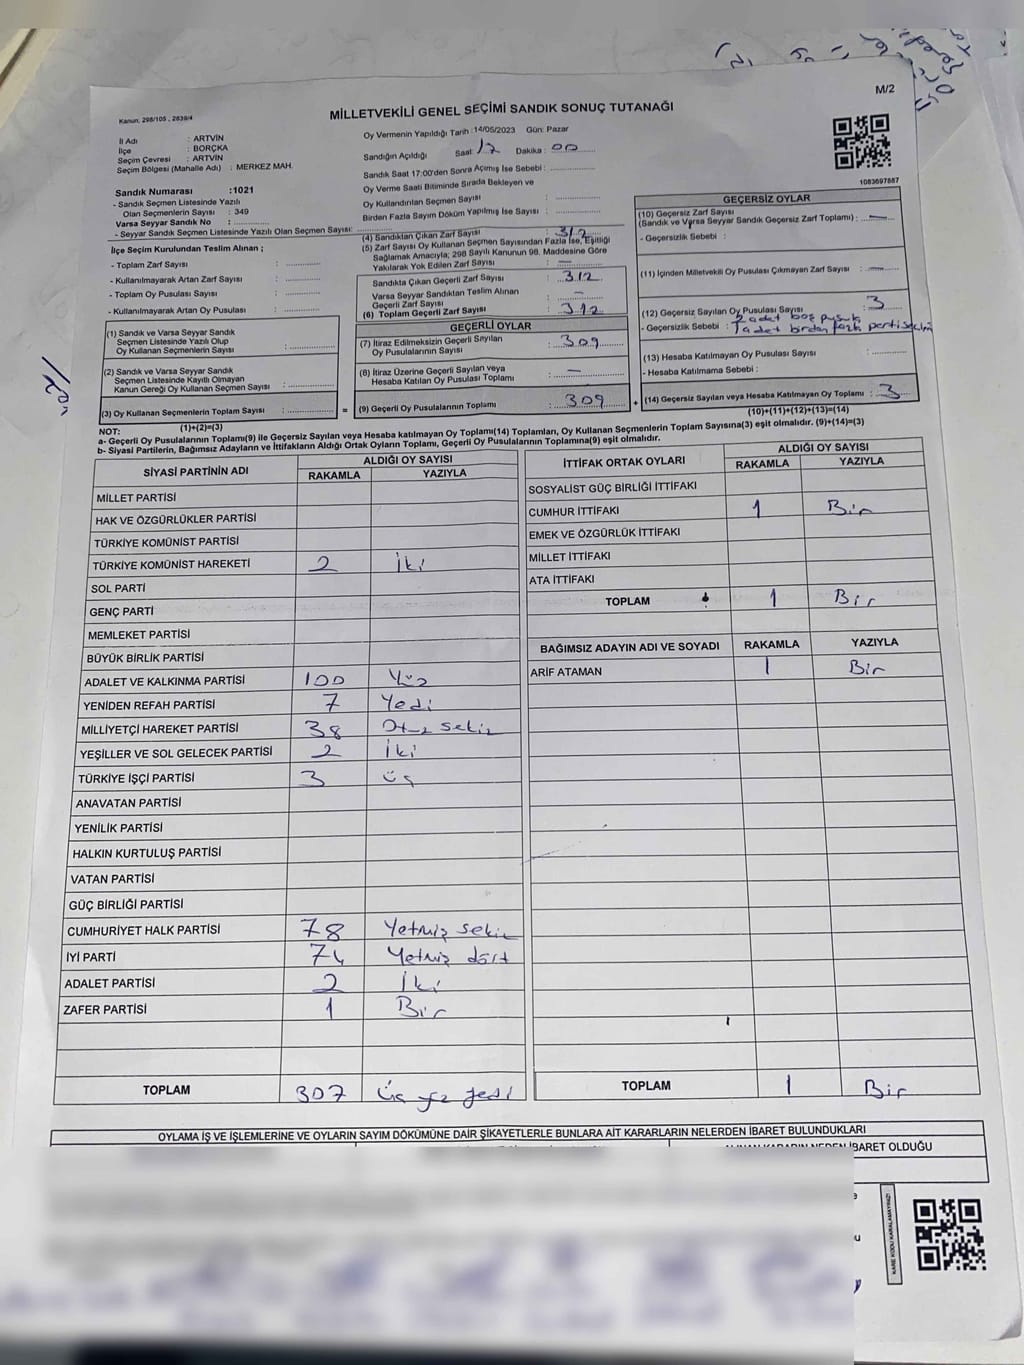 M/2
Kanun, 298/105 , 2839/4
MİLLETVEKİLİ GENEL SEÇİMİ SANDIK SONUÇ TUTANAĞI
İl Adı : ARTVİN
İlçe : BORÇKA
Seçim Çevresi : ARTVİN
Seçim Bölgesi (Mahalle Adı) : MERKEZ MAH.
Sandık Numarası :1021
- Sandık Seçmen Listesinde Yazılı
Olan Seçmenlerin Sayısı : 349
Varsa Seyyar Sandık No :
- Seyyar Sandık Seçmen Listesinde Yazılı Olan Seçmen Sayısı:
Oy Vermenin Yapıldığı Tarih :14/05/2023 Gün: Pazar
Sandığın Açıldığı Saat: 17 Dakika : 00
Sandık Saat 17:00'den Sonra Açımış İse Sebebi :
Oy Verme Saati Bitiminde Sırada Bekleyen ve
Oy Kullandırılan Seçmen Sayısı :
Birden Fazla Sayım Döküm Yapılmış İse Sayısı :
1083697887
İlçe Seçim Kurulundan Teslim Alınan ;
- Toplam Zarf Sayısı :
- Kullanılmayarak Artan Zarf Sayısı :
- Toplam Oy Pusulası Sayısı :
- Kullanılmayarak Artan Oy Pusulası :
(1) Sandık ve Varsa Seyyar Sandık
Seçmen Listesinde Yazılı Olup
Oy Kullanan Seçmenlerin Sayısı :
(2) Sandık ve Varsa Seyyar Sandık
Seçmen Listesinde Kayıtlı Olmayan
Kanun Gereği Oy Kullanan Seçmen Sayısı :
(3) Oy Kullanan Seçmenlerin Toplam Sayısı :
(1)+(2)=(3)
(4) Sandıktan Çıkan Zarf Sayısı : 312
(5) Zarf Sayısı Oy Kullanan Seçmen Sayısından Fazla İse, Eşitliği
Sağlamak Amacıyla; 298 Sayılı Kanunun 98. Maddesine Göre
Yakılarak Yok Edilen Zarf Sayısı : —
Sandıkta Çıkan Geçerli Zarf Sayısı : 312
Varsa Seyyar Sandıktan Teslim Alınan
Geçerli Zarf Sayısı : —
(6) Toplam Geçerli Zarf Sayısı : 312
GEÇERLİ OYLAR
(7) İtiraz Edilmeksizin Geçerli Sayılan
Oy Pusulalarının Sayısı : 309
(8) İtiraz Üzerine Geçerli Sayılan veya
Hesaba Katılan Oy Pusulası Toplamı : —
= (9) Geçerli Oy Pusulalarının Toplamı : 309 +
GEÇERSİZ OYLAR
(10) Geçersiz Zarf Sayısı
(Sandık ve Varsa Seyyar Sandık Geçersiz Zarf Toplamı) : —
- Geçersizlik Sebebi :
(11) İçinden Milletvekili Oy Pusulası Çıkmayan Zarf Sayısı : —
(12) Geçersiz Sayılan Oy Pusulası Sayısı : 3
2 adet boş pusula
- Geçersizlik Sebebi : 1 adet birden fazla parti seçimi
(13) Hesaba Katılmayan Oy Pusulası Sayısı :
- Hesaba Katılmama Sebebi :
(14) Geçersiz Sayılan veya Hesaba Katılmayan Oy Toplamı : 3
(10)+(11)+(12)+(13)=(14)
NOT:
a- Geçerli Oy Pusulalarının Toplamı(9) ile Geçersiz Sayılan veya Hesaba katılmayan Oy Toplamı(14) Toplamları, Oy Kullanan Seçmenlerin Toplam Sayısına(3) eşit olmalıdır. (9)+(14)=(3)
b- Siyasi Partilerin, Bağımsız Adayların ve İttifakların Aldığı Ortak Oyların Toplamı, Geçerli Oy Pusulalarının Toplamına(9) eşit olmalıdır.
SİYASİ PARTİNİN ADI ALDIĞI OY SAYISI
RAKAMLA YAZIYLA
MİLLET PARTİSİ
HAK VE ÖZGÜRLÜKLER PARTİSİ
TÜRKİYE KOMÜNİST PARTİSİ
TÜRKİYE KOMÜNİST HAREKETİ 2 İki
SOL PARTİ
GENÇ PARTİ
MEMLEKET PARTİSİ
BÜYÜK BİRLİK PARTİSİ
ADALET VE KALKINMA PARTİSİ 100 Yüz
YENİDEN REFAH PARTİSİ 7 Yedi
MİLLİYETÇİ HAREKET PARTİSİ 38 Otuz sekiz
YEŞİLLER VE SOL GELECEK PARTİSİ 2 İki
TÜRKİYE İŞÇİ PARTİSİ 3 üç
ANAVATAN PARTİSİ
YENİLİK PARTİSİ
HALKIN KURTULUŞ PARTİSİ
VATAN PARTİSİ
GÜÇ BİRLİĞİ PARTİSİ
CUMHURİYET HALK PARTİSİ 78 Yetmiş sekiz
İYİ PARTİ 74 Yetmiş dört
ADALET PARTİSİ 2 İki
ZAFER PARTİSİ 1 Bir
TOPLAM 307 Üç yüz yedi
İTTİFAK ORTAK OYLARI ALDIĞI OY SAYISI
RAKAMLA YAZIYLA
SOSYALİST GÜÇ BİRLİĞİ İTTİFAKI
CUMHUR İTTİFAKI 1 Bir
EMEK VE ÖZGÜRLÜK İTTİFAKI
MİLLET İTTİFAKI
ATA İTTİFAKI
TOPLAM 1 Bir
BAĞIMSIZ ADAYIN ADI VE SOYADI RAKAMLA YAZIYLA
ARİF ATAMAN 1 Bir
TOPLAM 1 Bir
OYLAMA İŞ VE İŞLEMLERİNE VE OYLARIN SAYIM DÖKÜMÜNE DAİR ŞİKAYETLERLE BUNLARA AİT KARARLARIN NELERDEN İBARET BULUNDUKLARI
ALINAN KARARIN NEDEN İBARET OLDUĞU
KARE KODU KARALAMAYINIZ!